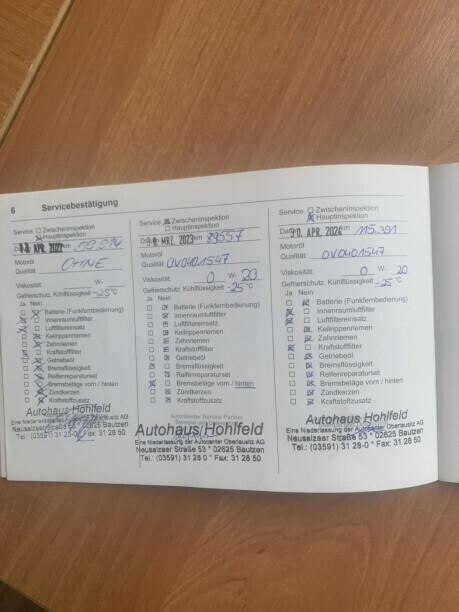 6 Servicebestätigung
Service: Zwischeninspektion
Hauptinspektion
APR. 2022 km
Motoröl
Qualität OHNE
Viskosität: W-
Gefrierschutz, Kühlflüssigkeit -25 °C
Ja Nein
Batterie (Funkfernbedienung)
Innenraumluftfilter
Luftfiltereinsatz
Keilrippenriemen
Zahnriemen
Kraftstofffilter
Getriebeöl
Bremsflüssigkeit
Reifenreparaturset
Bremsbeläge vorn / hinten
Zündkerzen
Kraftstoffzusatz
Autohaus Hohlfeld
Eine Niederlassung der Autocenter Oberlausitz AG
Neusalzaer Straße 53 * 02625 Bautzen
Fax: 31 28 50
Service: Zwischeninspektion
Hauptinspektion
MRZ. 2023 km 89557
Motoröl
Qualität 0V0401547
Viskosität: 0 W- 20
Gefrierschutz, Kühlflüssigkeit -25 °C
Ja Nein
Batterie (Funkfernbedienung)
Innenraumluftfilter
Luftfiltereinsatz
Keilrippenriemen
Zahnriemen
Kraftstofffilter
Getriebeöl
Bremsflüssigkeit
Reifenreparaturset
Bremsbeläge vorn / hinten
Zündkerzen
Kraftstoffzusatz
Autohaus Hohlfeld
Eine Niederlassung der Autocenter Oberlausitz AG
Neusalzaer Straße 53 * 02625 Bautzen
Tel.: (03591) 31 28 0 * Fax: 31 28 50
Service: Zwischeninspektion
Hauptinspektion
APR. 2024 km 115.391
Motoröl
Qualität 0V0401547
Viskosität: 0 W- 20
Gefrierschutz, Kühlflüssigkeit -25 °C
Ja Nein
Batterie (Funkfernbedienung)
Innenraumluftfilter
Luftfiltereinsatz
Keilrippenriemen
Zahnriemen
Kraftstofffilter
Getriebeöl
Bremsflüssigkeit
Reifenreparaturset
Bremsbeläge vorn / hinten
Zündkerzen
Kraftstoffzusatz
Autohaus Hohlfeld
Eine Niederlassung der Autocenter Oberlausitz AG
Neusalzaer Straße 53 * 02625 Bautzen
Tel.: (03591) 31 28-0 * Fax: 31 28 50